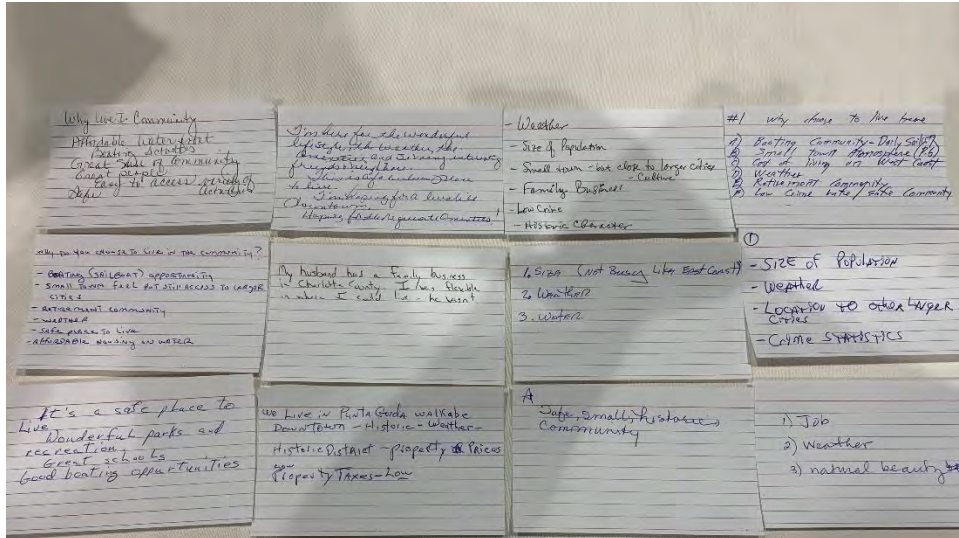 Why Live In Community
Affordable waterfront
Boating
Great Sense of Community
Great people
Easy to access variety of
Safe
I'm here for the wonderful
lifestyle with weather, the
and interesting
friends, neighbors
to live.
I'm hoping for a
Downtown.
Hoping for
- Weather
- Size of Population
- Small town - but close to larger cities
- Culture
- Family Business
- Low Crime
- Historic Character
#1 why choose to live here
Boating Community - Daily
Small Town Atmosphere (PG)
Cost of living on West Coast
Weather
Retirement Community
Low Crime Rate / safe Community
Why do you choose to live in the community?
- Boating (sailboat) opportunity
- Small town feel but still access to larger
cities
- Retirement community
- Weather
- Safe place to live
- Affordable housing on water
My husband has a family business
in Charlotte County. I was flexible
in where I could live - he wasn't.
1. Size (Not Busy Like East Coast)
2. Weather
3. Water
①
- Size of Population
- Weather
- Location to other larger
Cities
- Cryme Statistics
It's a safe place to
Live
Wonderful parks and
recreation
Great schools
Good boating oppurtunities
We Live in Punta Gorda walkabe
Downtown - Historic - Weather -
Historic District - property Prices
low
Property Taxes - Low
A
Safe, small, historic
Community
1) Job
2) Weather
3) natural beauty